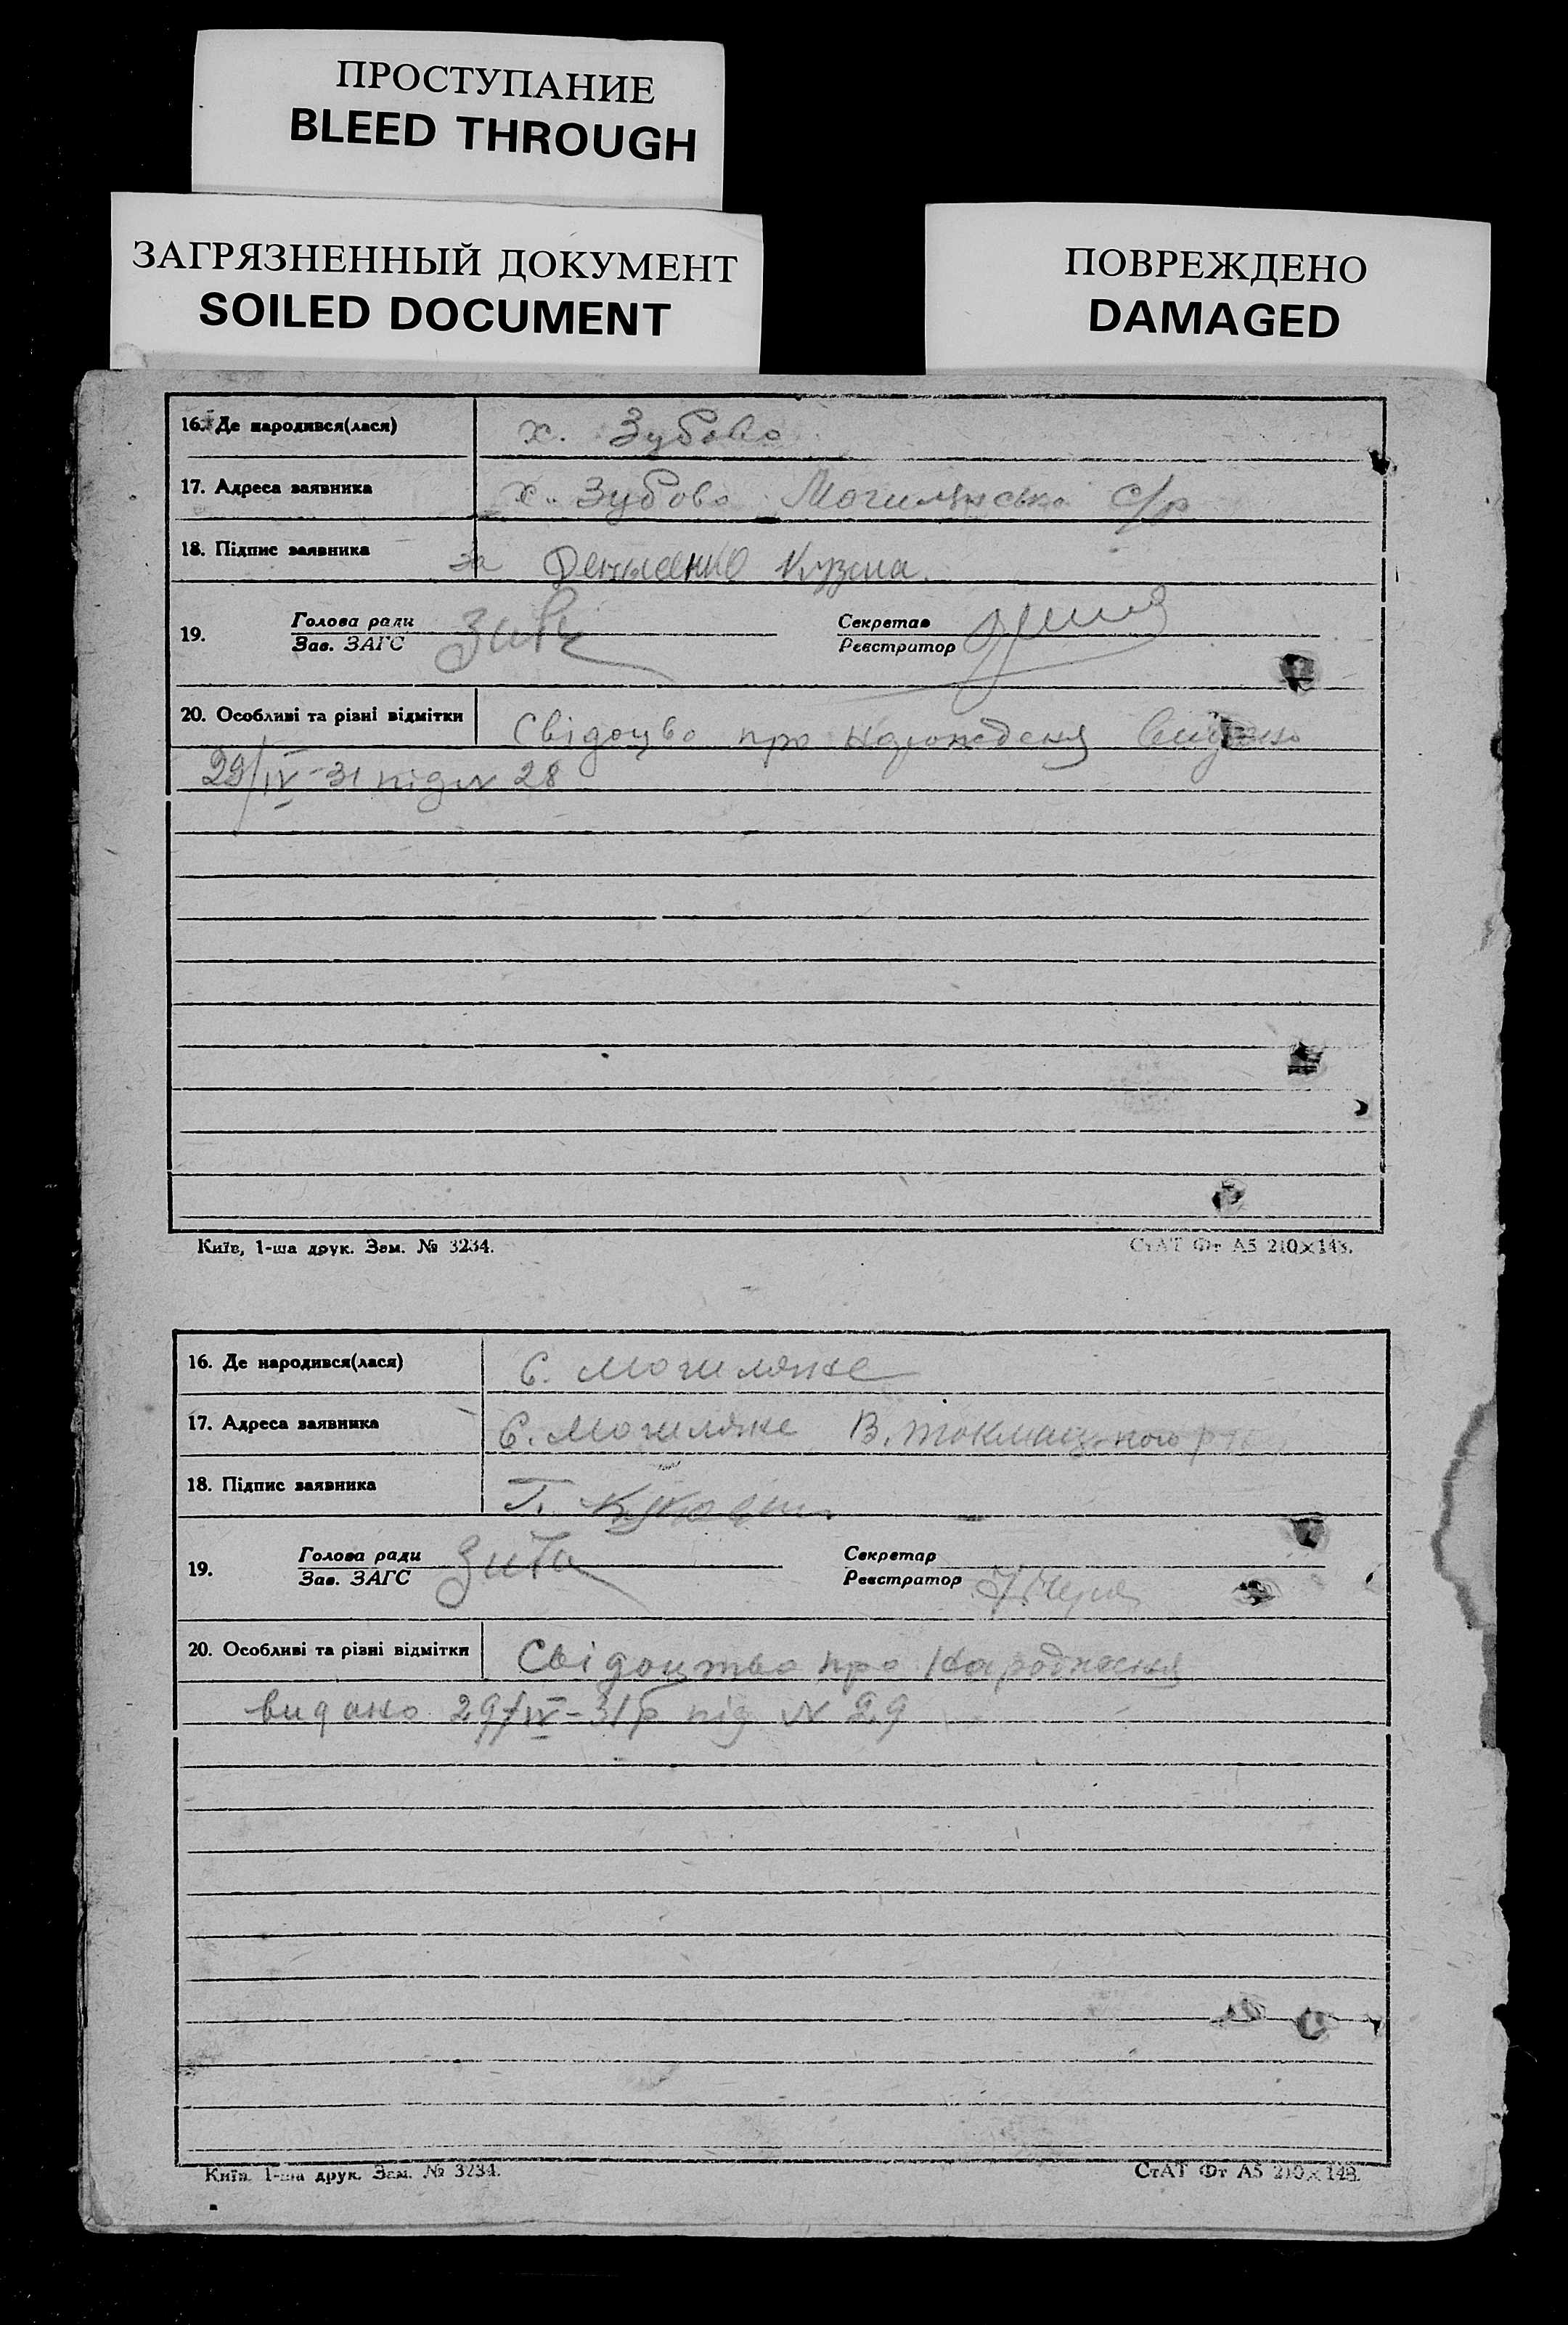 ПРОСТУПАНИЕ
BLEED THROUGH
ЗАГРЯЗНЕННЫЙ ДОКУМЕНТ
SOILED DOCUMENT
ПОВРЕЖДЕНО
DAMAGED
16. Де народився(лася) х. Зубово
17. Адреса заявника х. Зубово Могилянсько с/р
18. Підпис заявника за Кузма
19. Голова ради
Зав. ЗАГС
Секретар
Реєстратор
20. Особливі та різні відмітки Свідоцво про видано
29/IV-31 під N 28
Київ, 1-ша друк. Зам. № 3234.
СтАТ Фт А5 210×148.
16. Де народився(лася) С. Могиляне
17. Адреса заявника С. Могиляне В. Токмацького
18. Підпис заявника Г.
19. Голова ради
Зав. ЗАГС
Секретар
Реєстратор
20. Особливі та різні відмітки Свідоцтво про Народження
видано 29/IV-31р під N 29
Київ, 1-ша друк. Зам. № 3234.
СтАТ Фт А5 210×148.